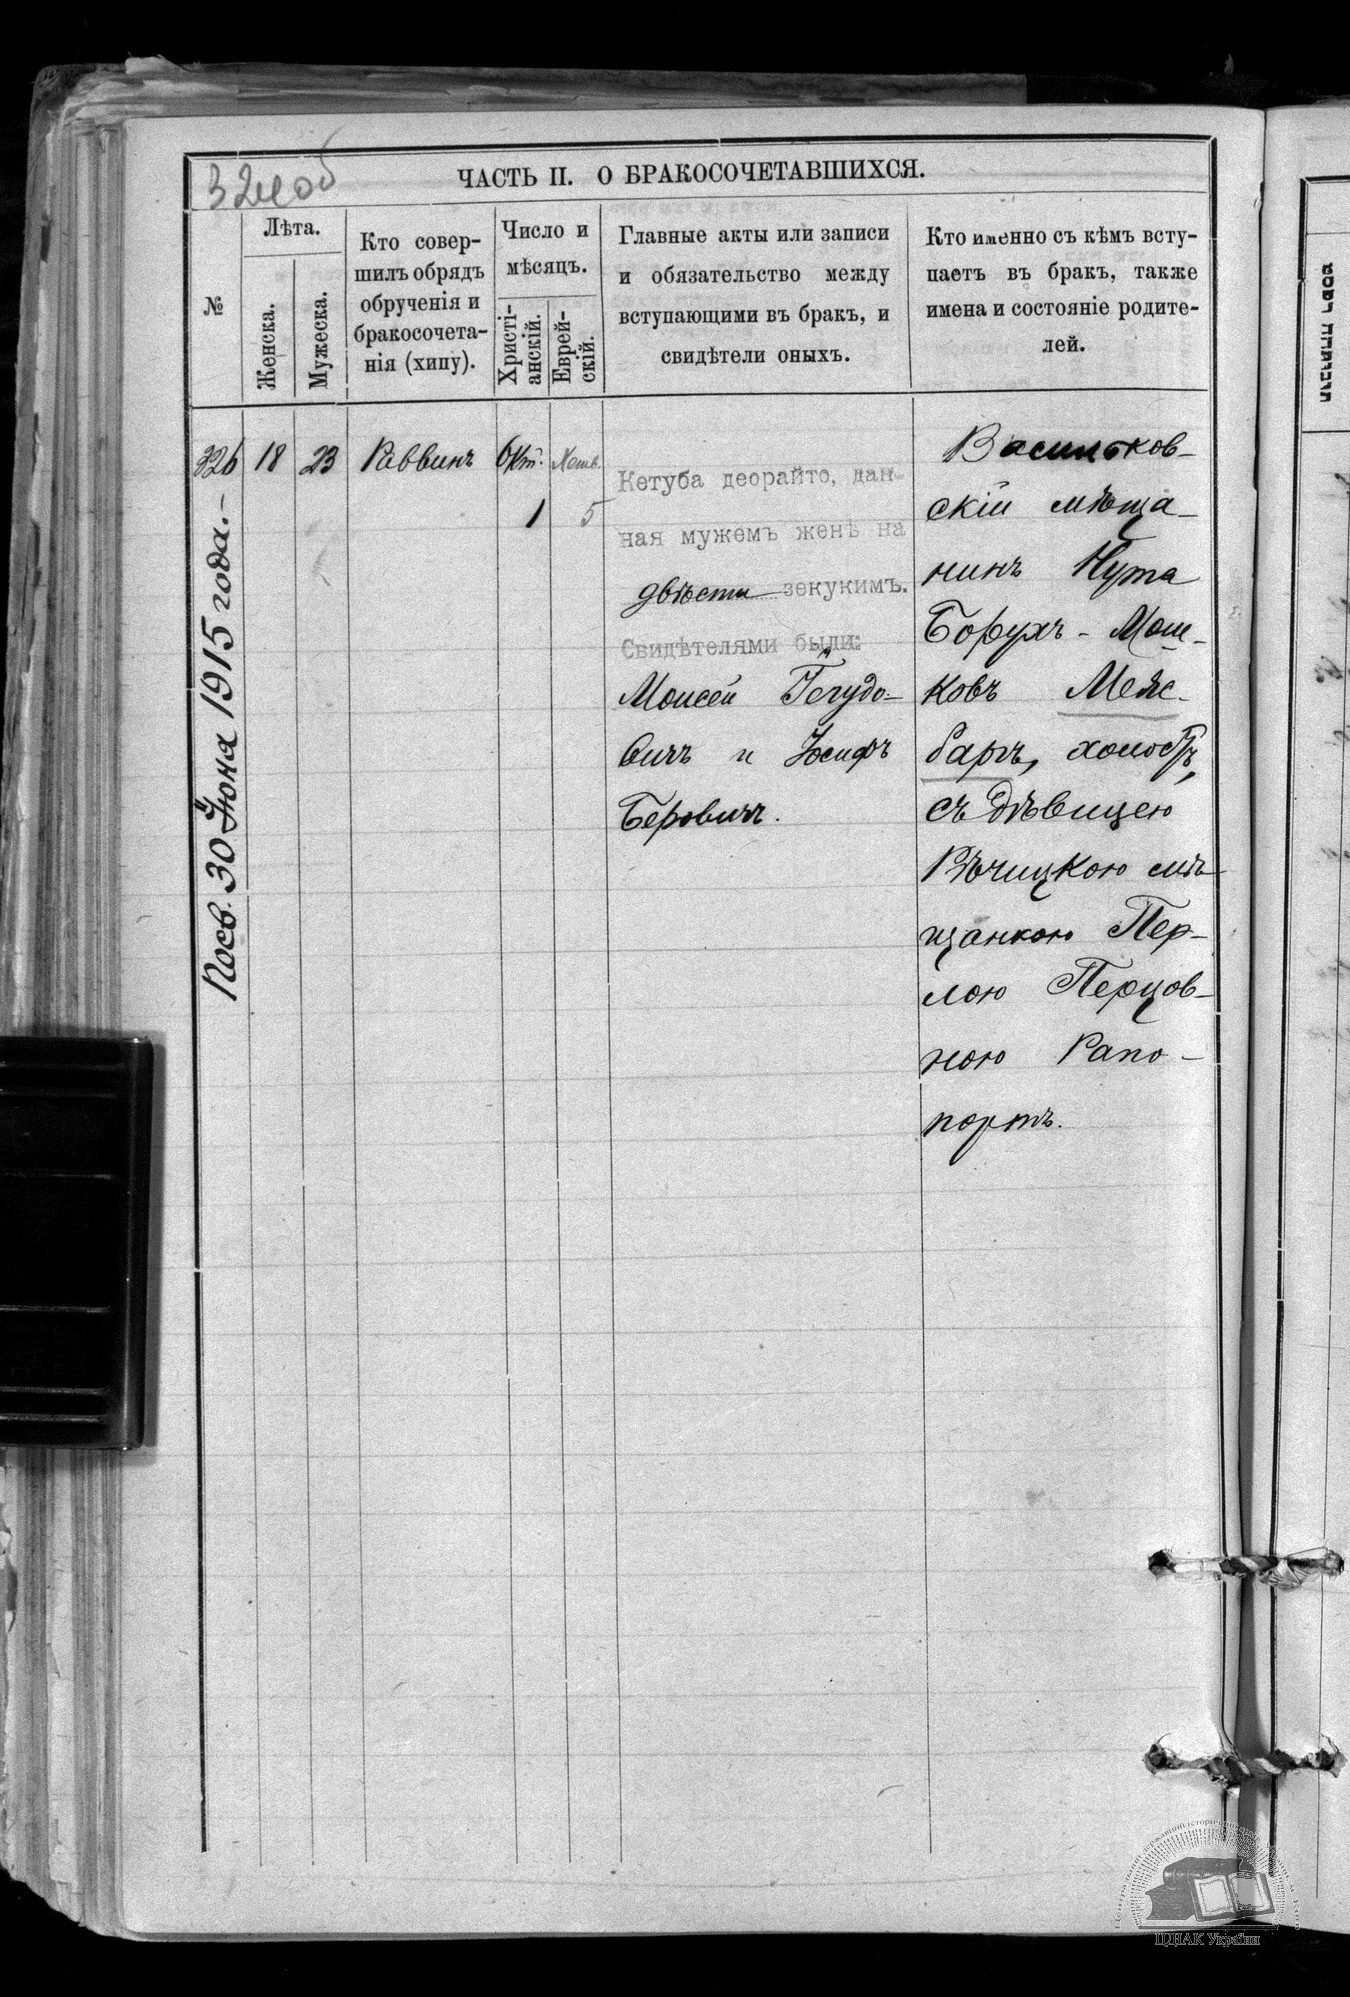 324об
ЧАСТЬ II. О БРАКОСОЧЕТАВШИХСЯ.
№
Лѣта.
Женска.
Мужеска.
Кто совер-
шилъ обрядъ
обрученія и
бракосочета-
нія (хипу).
Число и
мѣсяцъ.
Христі-
анскій.
Еврей-
скій.
Главные акты или записи
и обязательство между
вступающими въ бракъ, и
свидѣтели оныхъ.
Кто именно съ кѣмъ всту-
паетъ въ бракъ, также
имена и состояніе родите-
лей.
326
18
23
Раввинъ
Окт.
1
5
Кетуба деорайто, дан-
ная мужемъ женѣ на
двѣсти зекукимъ.
Свидѣтелями были:
Моисей Гегудо-
вичъ и Іосифъ
Беровичъ.
Васильков-
скій мѣща-
нинъ Нута
Борухъ - Мош-
ковъ
баргъ, холостъ,
съ дѣвицею
Рѣчицкою мѣ-
щанкою Пер-
лою Перцов-
ною Рапо-
портъ.
Посв. 30 Іюна 1915 года.-
ЦДІАК України